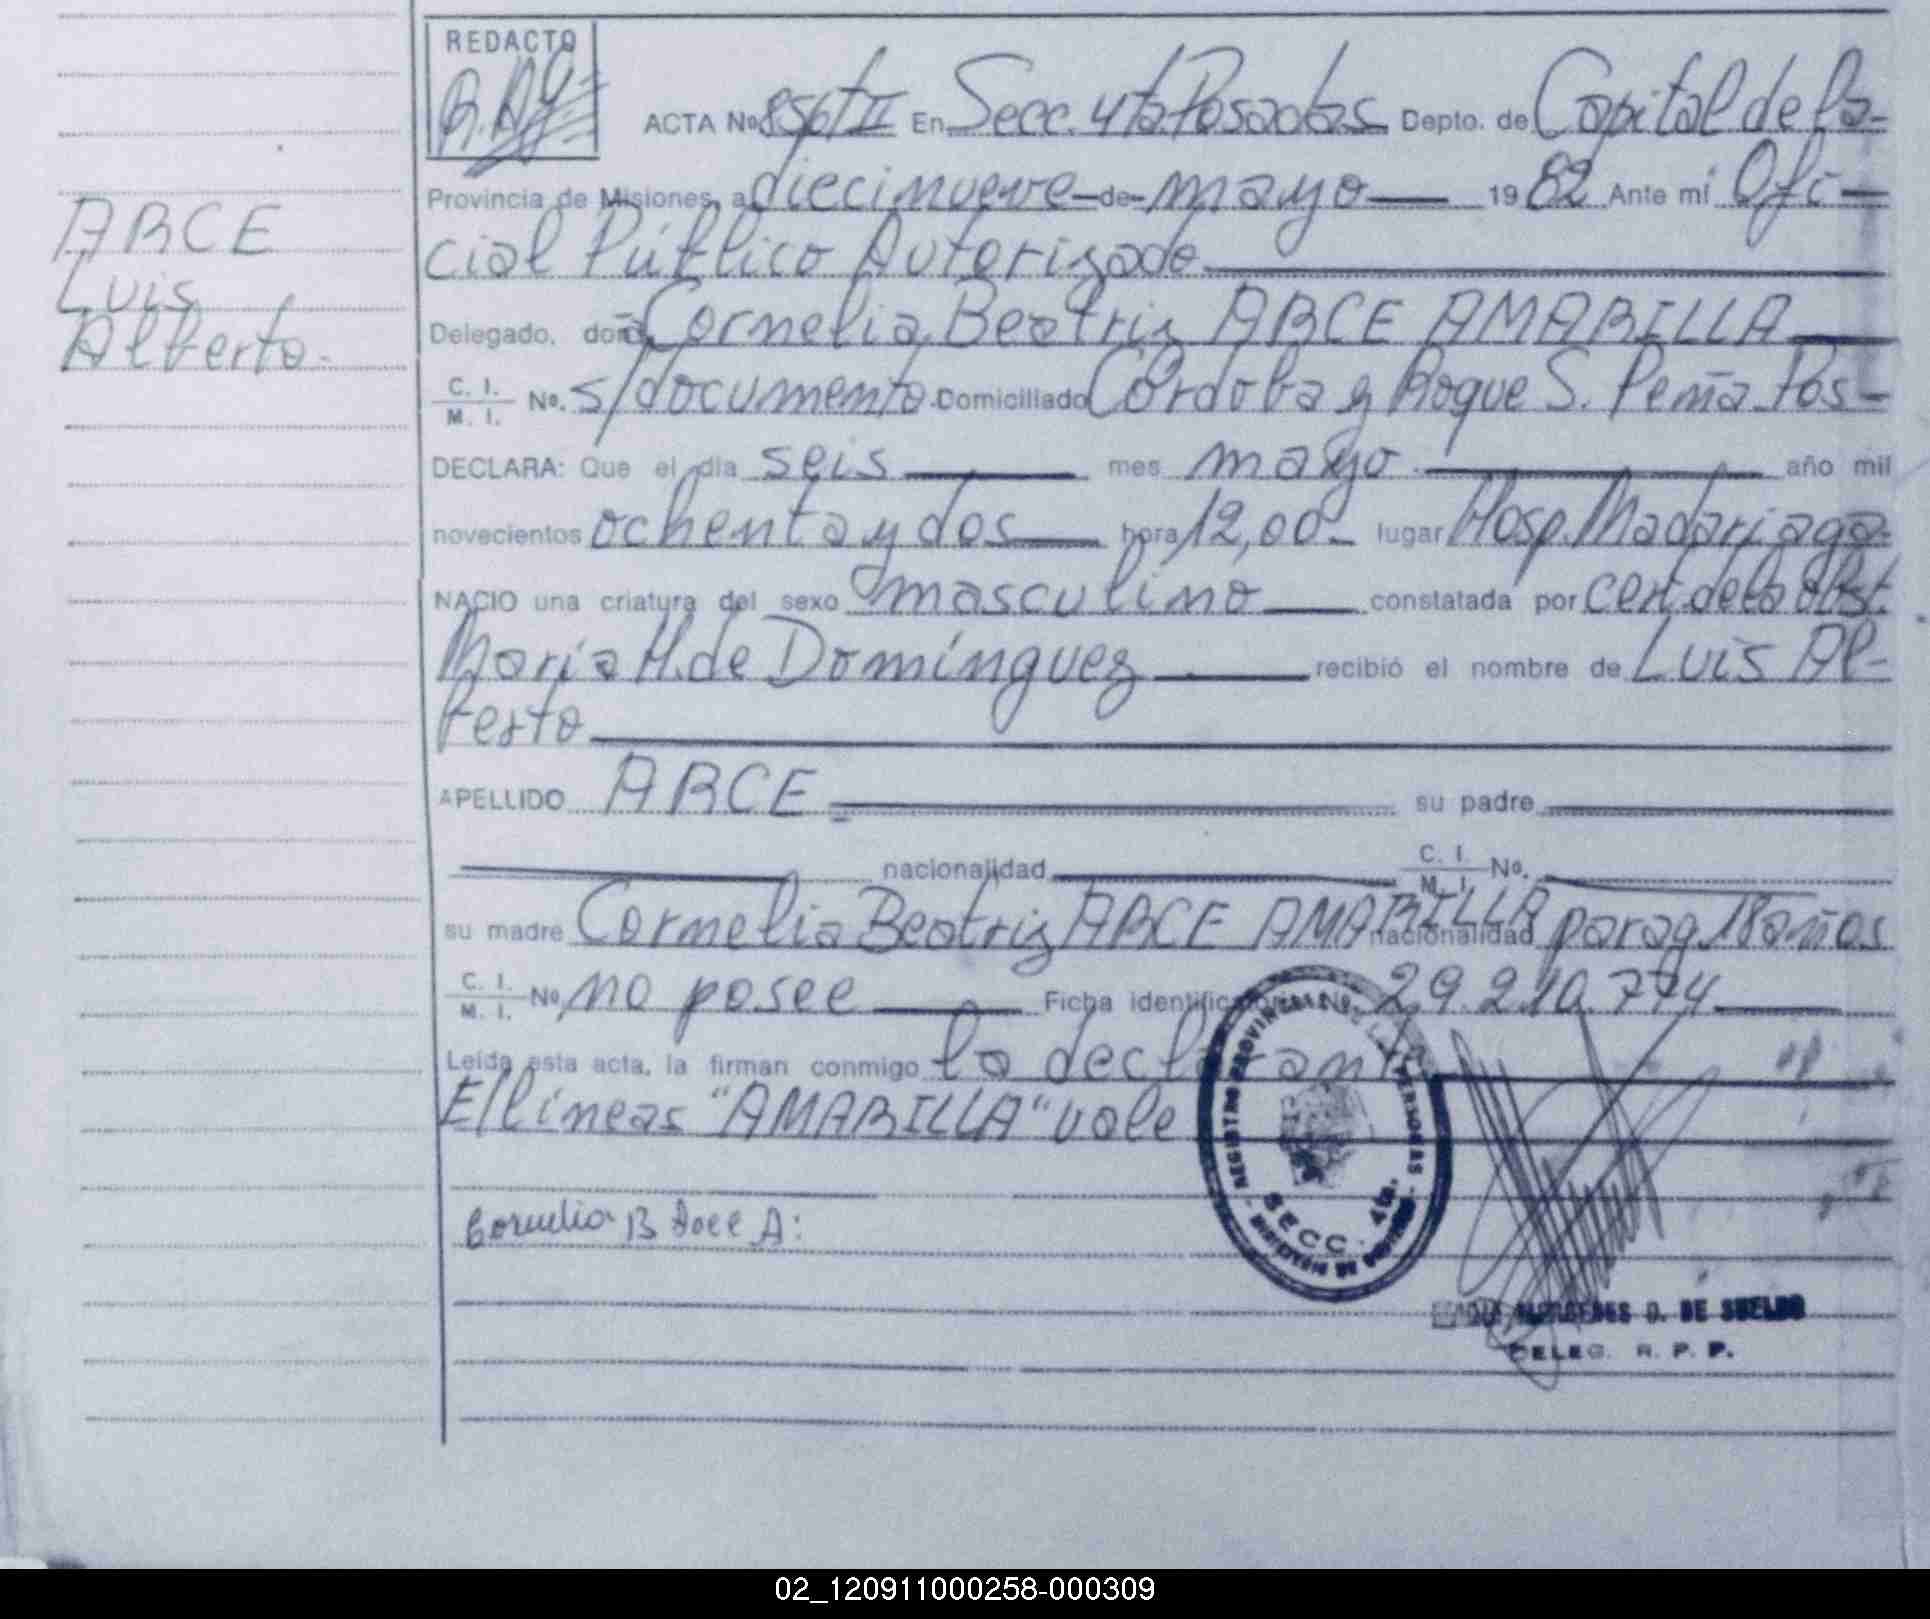 REDACTO
ACTA Nº 856 t II En Secc. 4ta Posadas Depto. de Capital de la-
Provincia de Misiones, a diecinueve-de-mayo 1982 Ante mí Ofi-
cial Público Autorizado
ARCE
Luis
Alberto.-
Delegado, doña Cornelia Beatriz ARCE AMARILLA
C. I. / M. I. Nº. s/documento Domiciliado Córdoba y Roque S. Peña Pos-
DECLARA: Que el día seis mes mayo año mil
novecientos ochenta y dos hora 12,00- lugar Hosp. Madariaga-
NACIO una criatura del sexo masculino constatada por cert. de la obst.
María H. de Domínguez recibió el nombre de Luis Al-
berto
APELLIDO ARCE su padre
nacionalidad C. I. / M. I. Nº.
su madre Cornelia Beatriz ARCE AMARILLA nacionalidad parag. 18 años
C. I. / M. I. Nº no posee Ficha identificatoria Nº 29.210.774
Leída esta acta, la firman conmigo la declarante
E/líneas "AMARILLA" vale
Cornelia B Arce A:
REGISTRO PROVINCIAL DE LAS PERSONAS
SECC. 4ta.
MERCEDES D. DE SUELDO
DELEG. R. P. P.
02_120911000258-000309